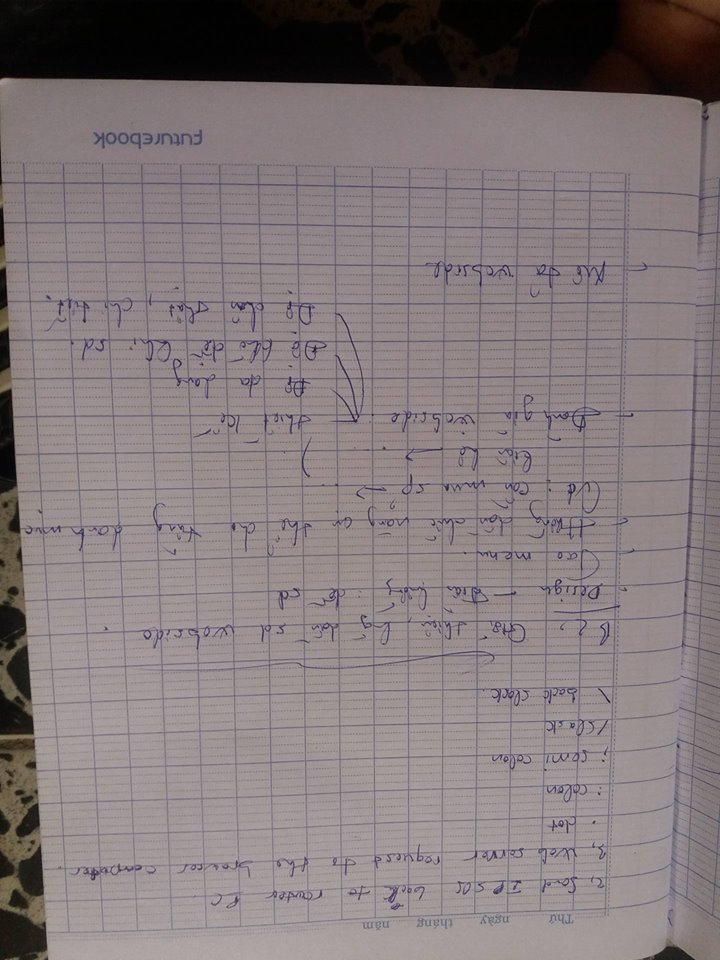 Thứ ngày tháng năm
2, Send IP SOS back to router PC.
3, Web server request to the browser computer.
. dot
: colon
; semi colon
/ slask
\ back slask.
B2, Giới thiệu, hg dẫn sd webside.
- Design – Điều hướng : dễ sd
- Tạo menu.
- Hướng dẫn chức năng cụ thể cho từng danh mục
Vd : cần mua sp → ...
liên hệ → .... ).
- Đánh giá webside. thiết kế
Độ đa dạng
Độ khó dễ khi sd.
Độ chân thật, chi tiết.
- Mô tả webside
FUTUREBOOK